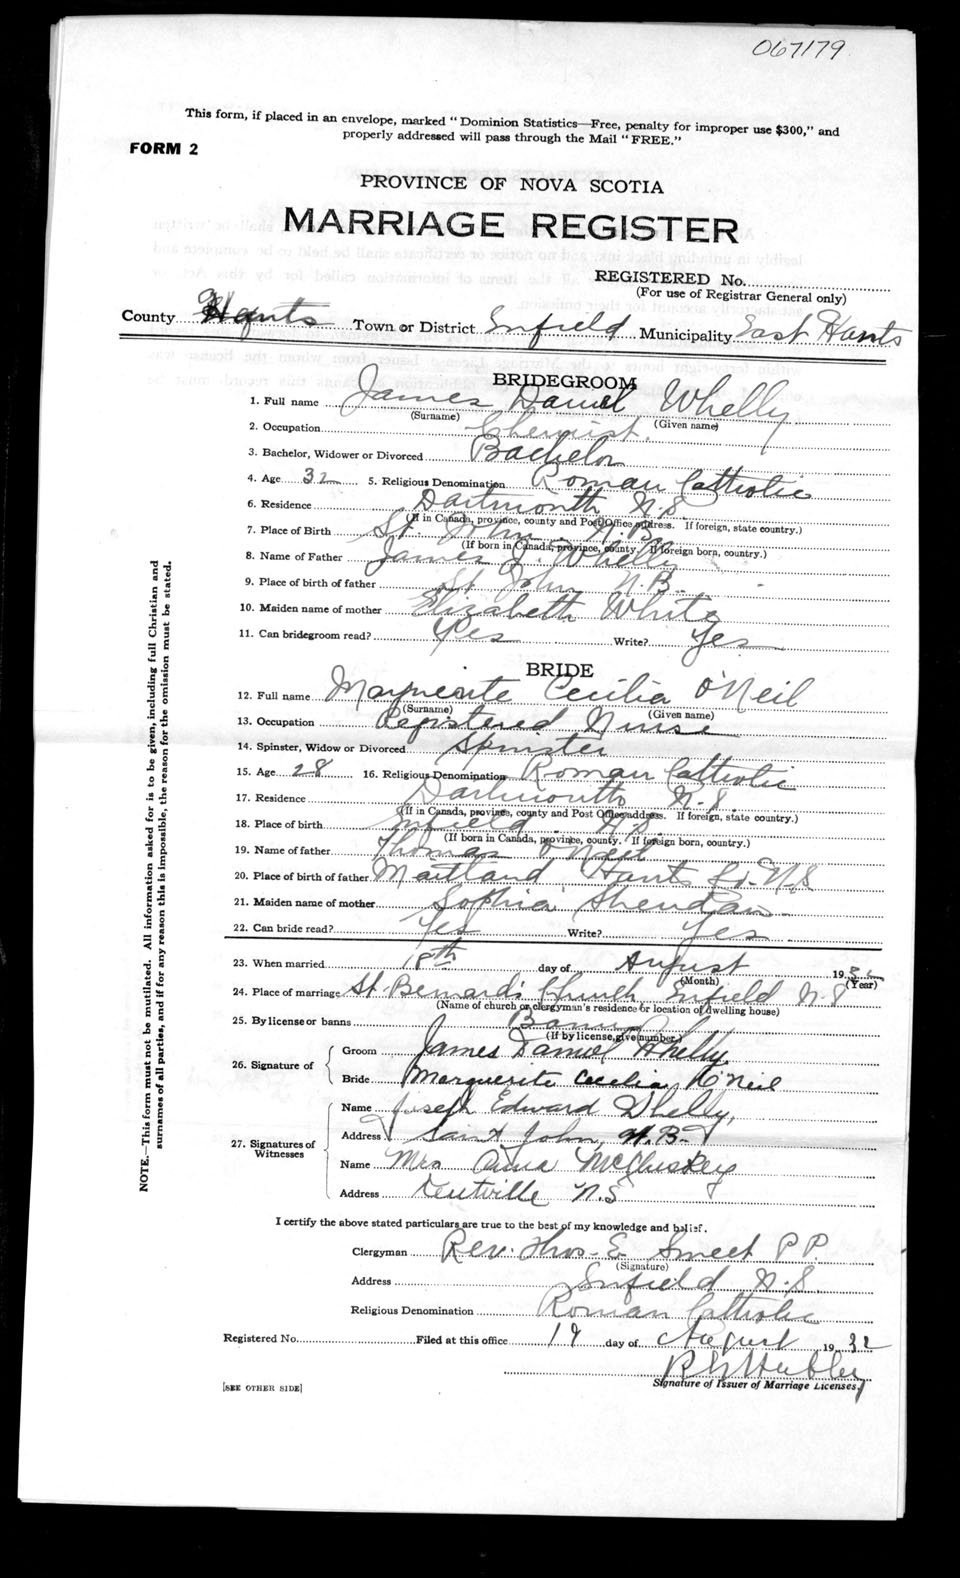 067179
This form, if placed in an envelope, marked "Dominion Statistics—Free, penalty for improper use $300," and
properly addressed will pass through the Mail "FREE."
FORM 2
PROVINCE OF NOVA SCOTIA
MARRIAGE REGISTER
REGISTERED No.
(For use of Registrar General only)
County Hants Town or District Enfield Municipality East Hants
BRIDEGROOM
1. Full name James Daniel Whelly
(Surname) (Given name)
2. Occupation Chemist.
3. Bachelor, Widower or Divorced Bachelor
4. Age 32 5. Religious Denomination Roman Catholic
6. Residence Dartmouth N.S
(If in Canada, province, county and Post Office address. If foreign, state country.)
7. Place of Birth St. John N.B.
(If born in Canada, province, county. If foreign born, country.)
8. Name of Father James J. Whelly
9. Place of birth of father St John N.B.
10. Maiden name of mother Elizabeth White
11. Can bridegroom read? Yes Write? Yes
BRIDE
12. Full name Marguerite Cecilia O'Neil
(Surname) (Given name)
13. Occupation Registered Nurse
14. Spinster, Widow or Divorced Spinster
15. Age 28 16. Religious Denomination Roman Catholic
17. Residence Dartmouth N.S.
(If in Canada, province, county and Post Office address. If foreign, state country.)
18. Place of birth Enfield N.S.
(If born in Canada, province, county. If foreign born, country.)
19. Name of father Thomas O'Neil
20. Place of birth of father Maitland Hants Co. N.S
21. Maiden name of mother Sophia Sheridan
22. Can bride read? Yes Write? Yes
23. When married 18th day of August 1932
(Month) (Year)
24. Place of marriage St. Bernard's Church Enfield N.S
(Name of church or clergyman's residence or location of dwelling house)
25. By license or banns Banns
(If by license, give number.)
26. Signature of
Groom James Daniel Whelly.
Bride Marguerite Cecelia O'Neil
27. Signatures of Witnesses
Name Joseph Edward Whelly,
Address Saint John, N.B.
Name Mrs Anna McCluskey
Address Kentville N.S
I certify the above stated particulars are true to the best of my knowledge and belief.
Clergyman Rev. Thos. E Sweet P.P.
(Signature)
Address Enfield N.S.
Religious Denomination Roman Catholic
Registered No. Filed at this office 19 day of August 1932
Signature of Issuer of Marriage Licenses.
[SEE OTHER SIDE]
NOTE.—This form must not be mutilated. All information asked for is to be given, including full Christian and
surnames of all parties, and if for any reason this is impossible, the reason for the omission must be stated.